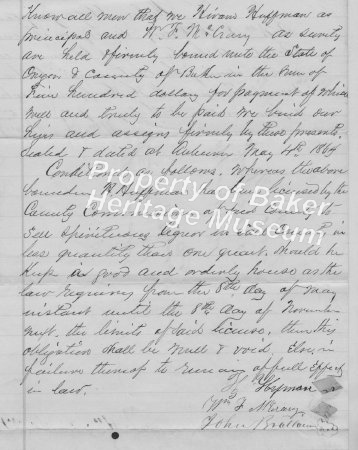 Know all men that we Hiram Huffman as
principal and W. F. McCrary as surety
are held & firmly bound unto the State of
Oregon & County of Baker in the sum of
Five hundred dollars for payment of which
well and truly to be paid we bind our
heirs and assigns firmly by these presents.
Sealed & dated at Auburn May 4th 1864
Condition as follows. Whereas the above
bounden H Huffman has been licensed by the
County Commissioners of said County to
Sell Spirituous Liquor in said County in
less quantity than one quart. should he
keep a good and orderly house as the
law requires from the 8th day of May
instant until the 8th day of November
next. the limits of said license. then this
obligation shall be null & void. Else, in
failure thereof to remain of full effect
in law.
H Huffman
Wm F McCrary
John
Property of Baker
Heritage Museum